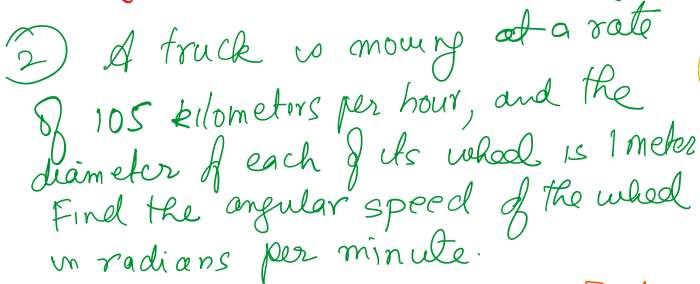 2 A truck is moving at a rate
of 105 kilometers per hour, and the
diameter of each of its wheel is 1 meter
Find the angular speed of the wheel
in radians per minute.